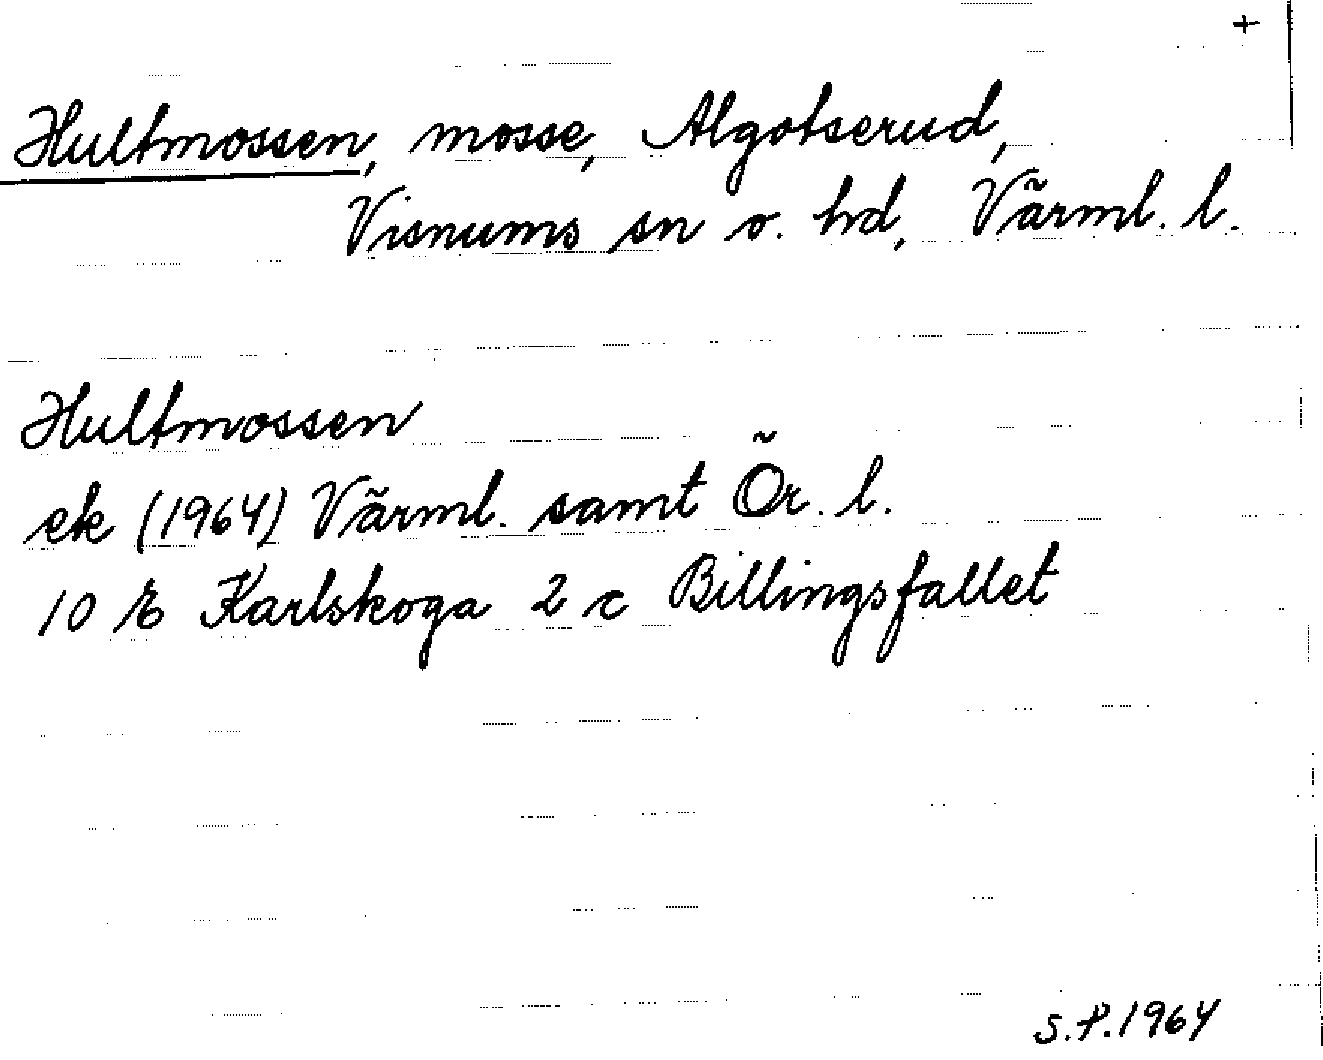 +
Hultmossen, mosse, Algotserud,
Visnums sn o. hd, Värml. l.
Hultmossen
ek (1964) Värml. samt Ör. l.
10 E Karlskoga 2 c Billingsfallet
S.P. 1964